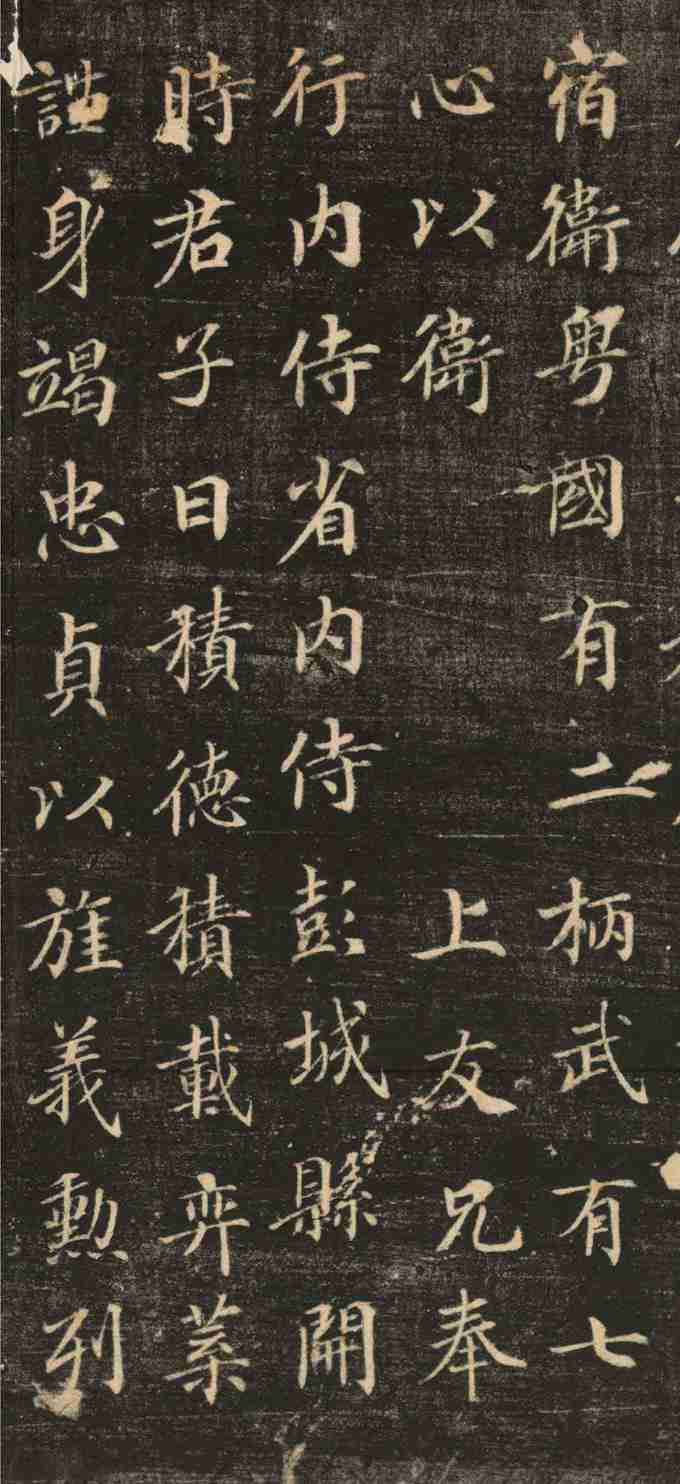 宿衛粤國有二柄武有七
心以衛　上友兄奉
行内侍省内侍彭城縣開
時君子曰積德積載弈葉
身竭忠貞以旌義勲列